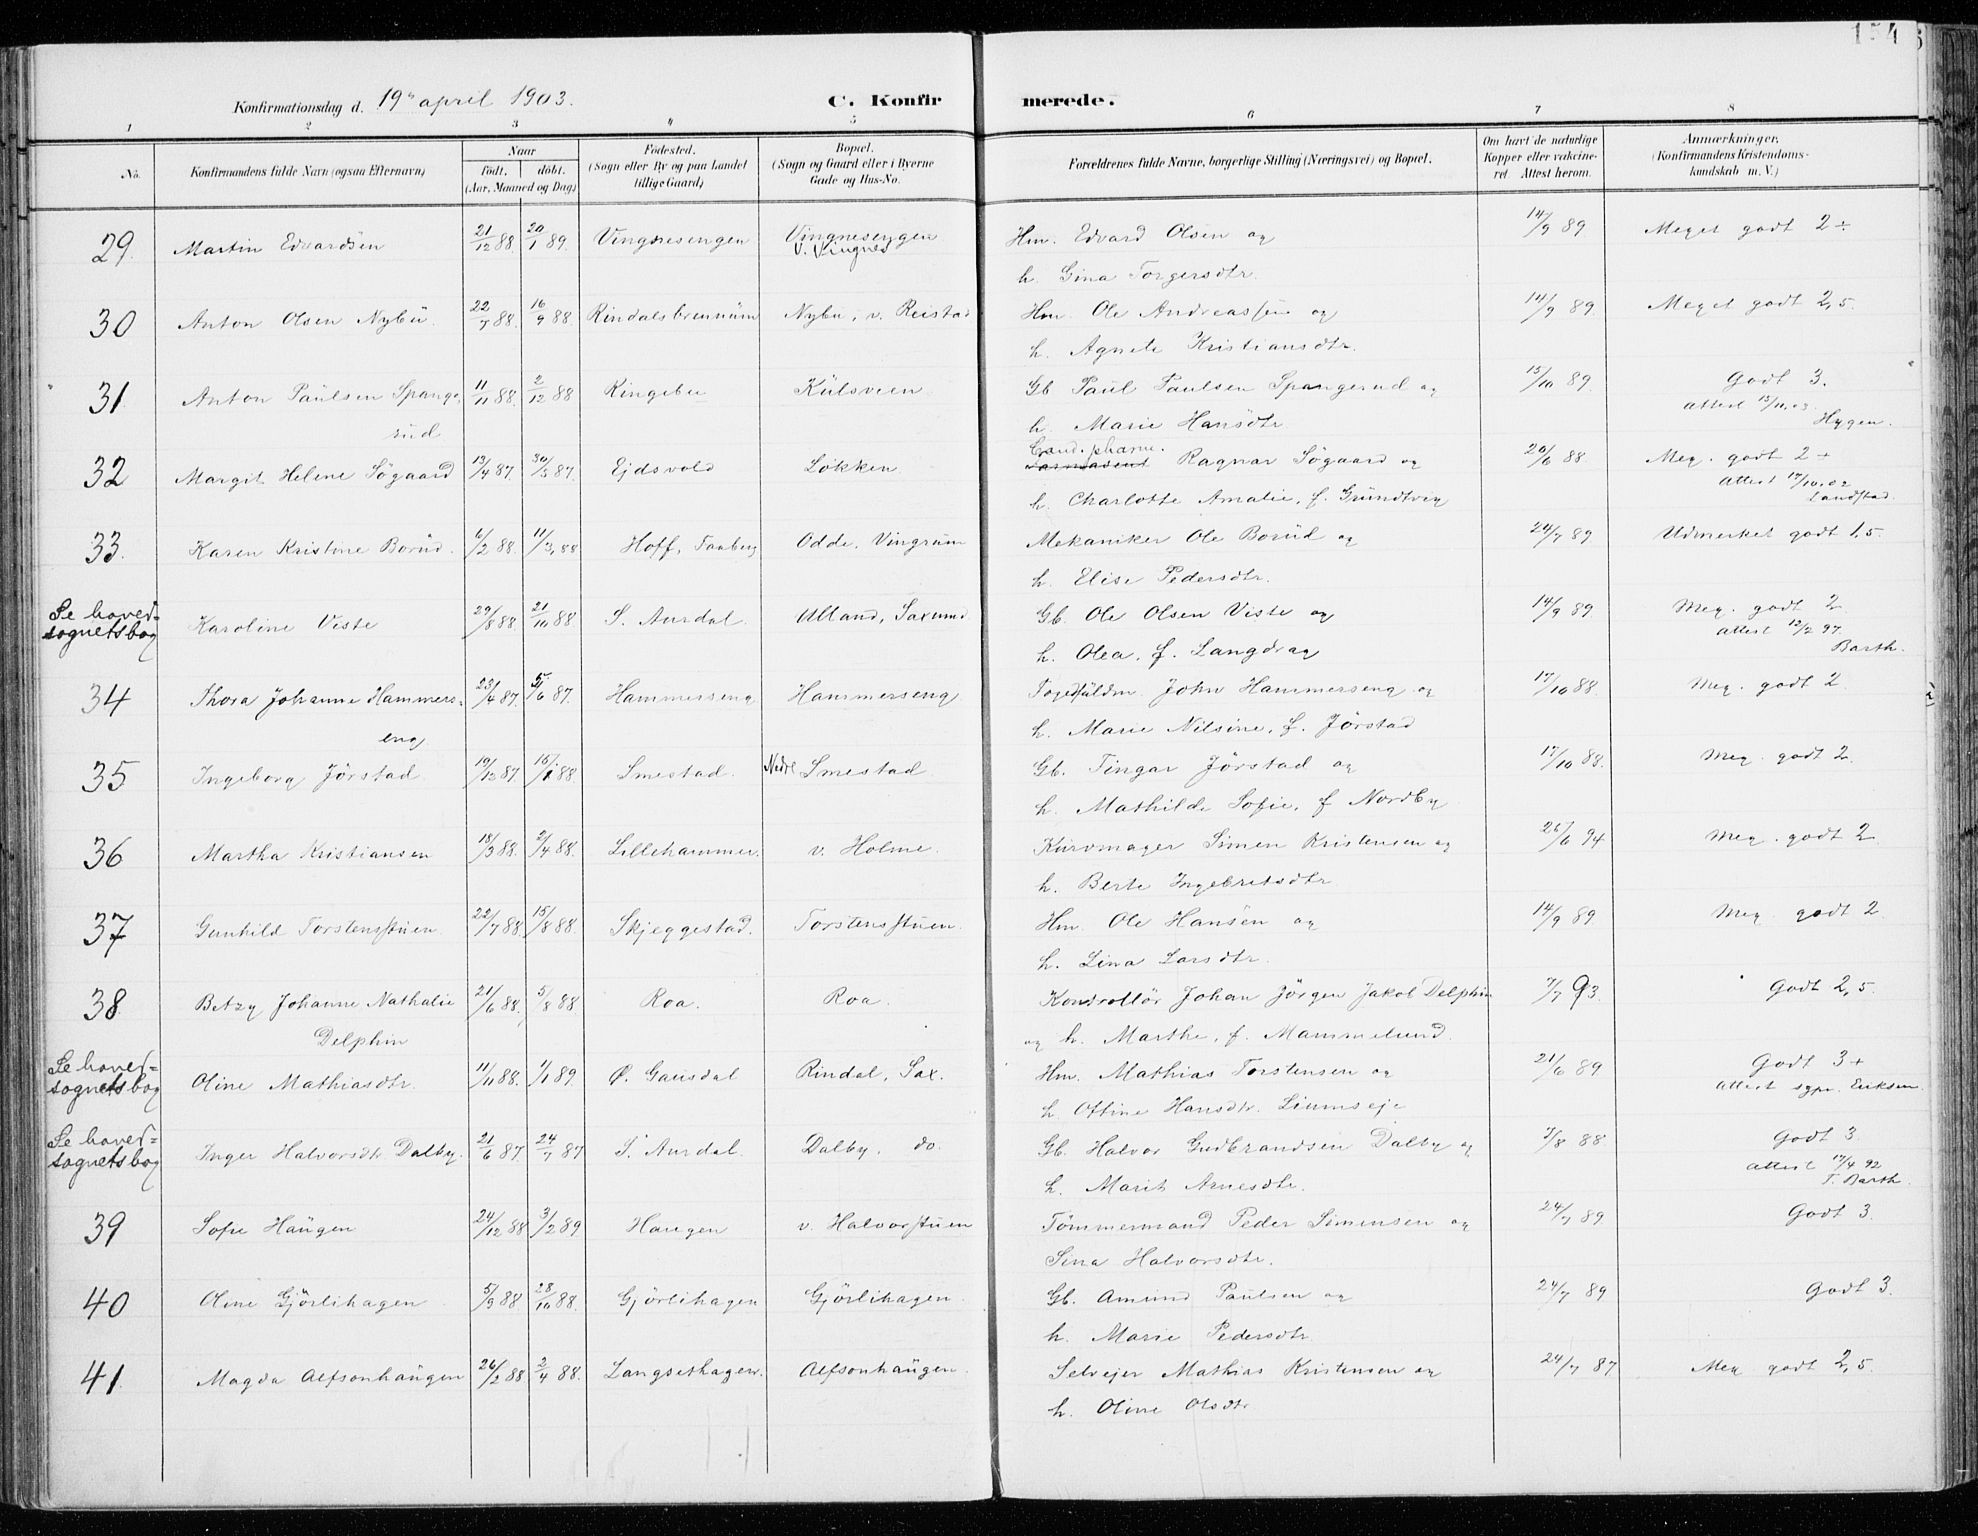 154
Konfirmationsdag d. 19de april 1903. C. Konfirmerede.
1 2 3 4 5 6 7 8
No. Konfirmandens fulde Navn (ogsaa Efternavn) Naar født. døbt. (Aar, Maaned og Dag) Fødested. (Sogn eller By og paa Landet tillige Gaard) Bopæl. (Sogn og Gaard eller i Byerne Gade og Hus-No. Forældrenes fulde Navne, borgerlige Stilling (Næringsvei) og Bopæl. Om havt de naturlige Kopper eller vakcineret. Attest herom. Anmærkninger. (Konfirmandens Kristendomskundskab m. V.)
29. Martin Edvardsen 21/12 88. 20/1 89. Vingnesengen Vingnesengen Hm. Edvard Olsen og 14/9 89 Meget godt 2÷
v. Vingnes h. Gina Torgersdtr.
30 Anton Olsen Nybü. 22/7 88. 16/9 88. Rindalsbrennüm Nybü, v. Reistad Hm. Ole Andreassen og 14/9 89. Meget godt 2,5.
h. Agnete Kristiansdtr.
31 Anton Paülsen Spange- 11/11 88. 2/12 88 Ringebu Külsveen Gb Paul Paulsen Spangerud og 15/10 89. Godt 3.
rüd h. Marie Hansdtr attest 13/11.03. Hygen.
32 Margit Helene Sögaard 13/4 87. 30/5 87. Ejdsvold Lökken Cand. pharm. Ragnar Sögaard og 20/6 88. Meg. godt 2+
h. Charlotte Amalie, f. Gründtvig attest 17/10.02 Landstad.
33. Karen Kristine Borüd. 6/2 88. 11/3,88 Hoff, Faaberg Odde, Vingrüm Mekaniker Ole Borüd og 24/7 89 Udmerket godt 1,5.
h. Elise Pedersdtr.
Se hoved-
sognets bog Karoline Viste 29/8 88. 21/10 88 S. Aurdal. Ulland, Saxumd Gb. Ole Olsen Viste og 14/9 89 Meg. godt 2
h. Olea, f. Langdrag attest 12/2 97. Barth.
34 Thora Johanne Hammers- 23/4 87. 5/6 87. Hammerseng Hammerseng John Hammerseng og 17/10 88. Meg. godt 2.
eng h. Marie Nilsine, f. Jörstad
35 Ingeborg Jörstad 19/12 87. 15/1 88. Smestad. Nedre Smestad Gb. Tingar Jörstad og 17/10 88. Meg. godt 2.
h. Mathilde Sofie, f Nordby
36 Martha Kristiansen 18/3 88. 2/4 88. Lillehammer. v. Holme. Kürvmager Simen Kristensen og 26/6 94 Meg. godt 2
h. Berte Ingebretsdtr
37 Gunhild Torstensstüen. 22/7 88. 15/8 88. Skjeggestad. Torstensstuen. Hm. Ole Hansen og 14/9 89. Meg. godt 2.
h. Lina Larsdtr.
38. Betzy Johanne Nathalie 21/6 88. 5/8 88 Roa. Roa. Kontrollör Johan Jörgen Jakob Delphin 7/7 93. Godt 2,5.
Delphin og h. Marthe, f. Mammelund.
Se hoved-
sognets bog Oline Mathiasdtr. 11/11 88. 1/1 89. Ø. Gausdal Rindal, Sax. Hm. Mathias Torstensen og 21/6 89 Godt 3+
h. Ottine Hansdtr. Liumseje attest sgpr. Eriksen.
Se hoved-
sognets bog Inger Halvorsdtr Dalby. 21/6 87. 24/7 87 S. Aurdal. Dalby. do. Gb. Halvor Gudbrandsen Dalby og 7/8 88. Godt 3.
h. Marit Arnesdtr. attest 17/4 92 T. Barth.
39 Sofie Haügen 24/12 88 3/2 89 Haugen v. Halvorstuen Tömmermand Peder Simensen og 24/7 89 Godt 3.
Sina Halvorsdtr.
40 Oline Gjörlihagen 5/9 88 28/10 88. Gjörlihagen Gjörlihagen. Gb. Amünd Paulsen og 24/7 89 Godt 3.
h. Marie Pedersdtr
41. Magda Alfsonhaügen 26/2 88 2/4 88. Langsethagen. Alfsonhaügen. Selvejer Mathias Kristensen og 24/7 87 Meg godt 2,5.
h. Oline Olsdtr